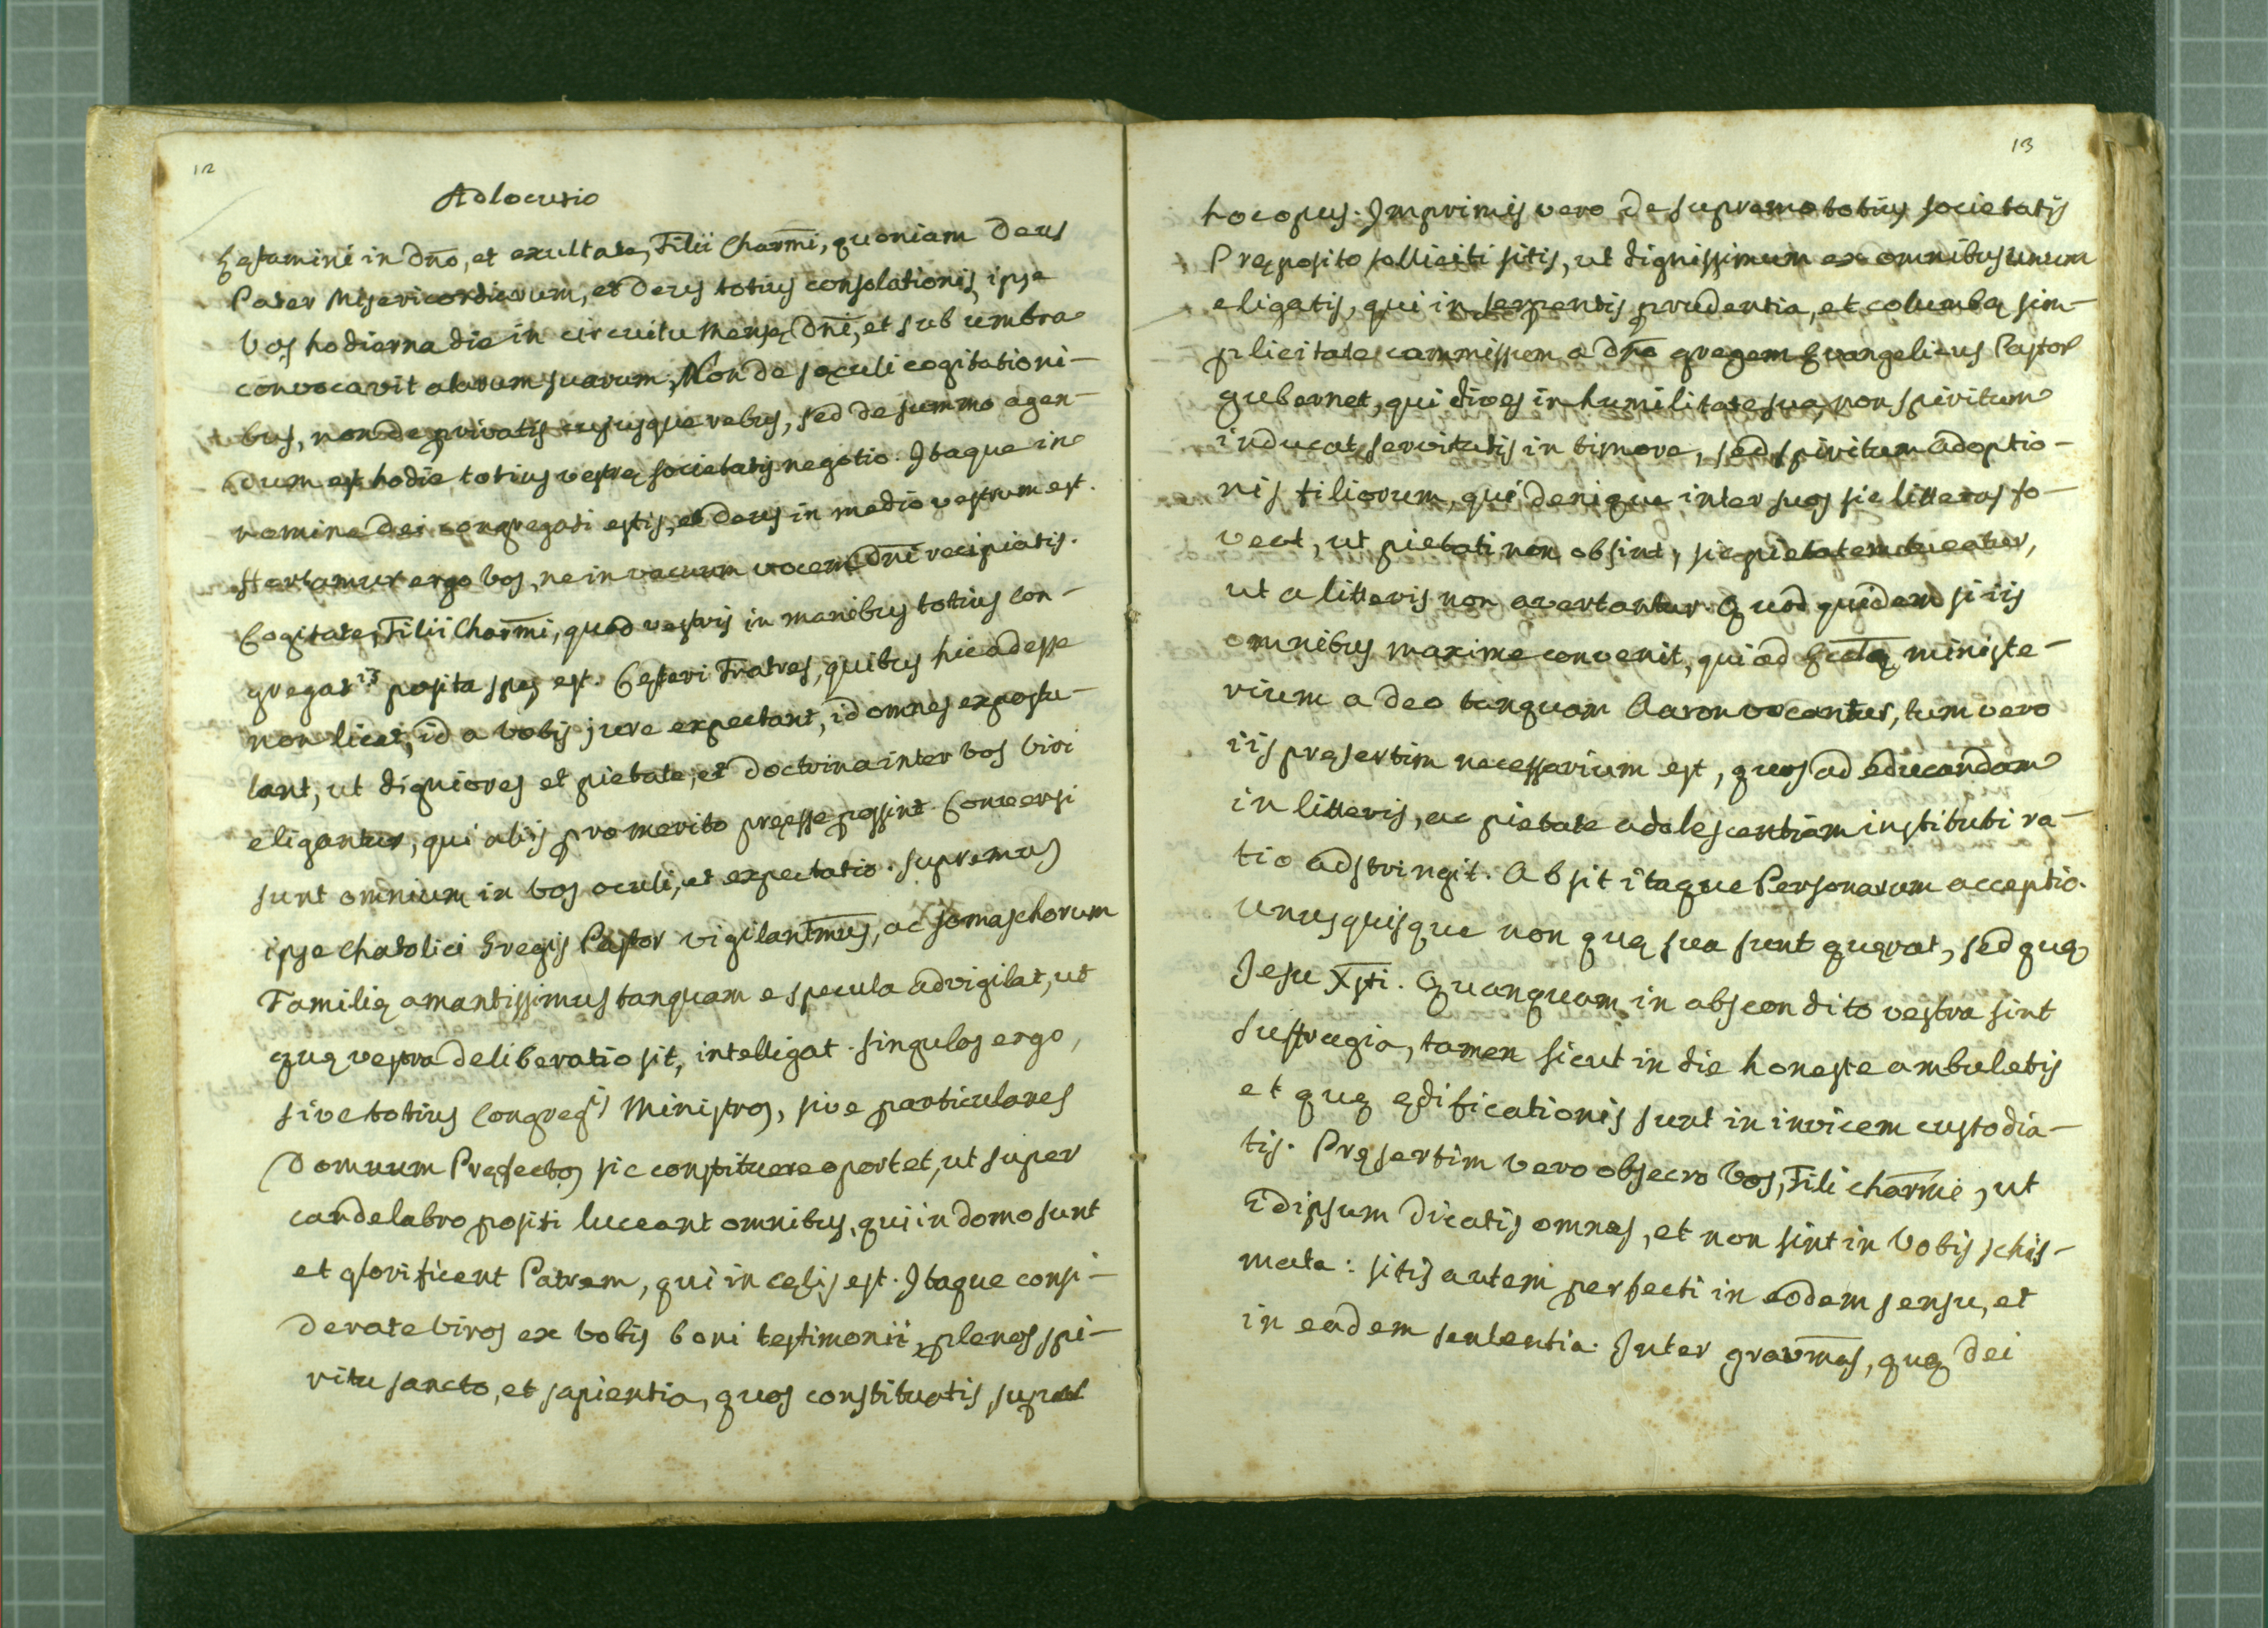 12
Adlocutio
Lętamini in Dn̄o, et exultate, Filii Charm̄i, quoniam Deus
Pater Misericordiarum, et Deus totius consolationis, ipse
Vos hodierna die in circuitu Mensę Dn̄i, et sub umbra
convocavit alarum suarum; Non de sęculi cogitationi-
bus, non de privatis cujusque rebus, sed de summo agen-
dum est hodie totius vestrę societatis negotio. Itaque in
nomine Dei congregati estis, et Deus in medio vestrum est.
Hortamur ergo vos, ne in vacuum vocem Dn̄i recipiatis.
Cogitate, Filii Charm̄i, quod vestris in manibus totius Con-
gregat.is posita spes est. Cęteri Fratres, quibus hic adesse
non licet, id a vobis jure expectant, id omnes expostu-
lant, ut digniores et pietate, et doctrina inter vos viri
eligantur, qui aliis pro merito pręesse possint. Conversi
sunt omnium in vos oculi, et expectatio. Supremus
ipse Chatolici Gregis Pastor vigilantm̄us, ac Somaschorum
Familię amantissimus tanquam e specula advigilat, ut
quę vestra deliberatio sit, intelligat. Singulos ergo,
sive totius Congreg.is Ministros, sive particulares
Domuum Pręfectos sic constituere oportet, ut super
candelabro positi luceant omnibus, qui in domo sunt
et glorificent Patrem, qui in cęlis est. Itaque consi-
derate Viros ex vobis boni testimonii, plenos spi-
ritu sancto, et sapientia, quos constituatis super
13
hoc opus. Imprimis vero de supremo totius societatis
Pręposito solliciti sitis, ut dignissimum ex omnibus unum
eligatis, qui in serpentis prudentia, et columbę sim-
plicitate commissum a Dn̄o gregem Evangelicus Pastor
gubernet, qui dives in humilitate sua, non spiritum
inducat servitutis in timore, sed spiritum adoptio-
nis filiorum, qui denique inter suos sic litteras fo-
veat, ut pietati non obsint, sic pietatem tueatur,
ut a litteris non avertantur. Quod quidem si iis
omnibus maxime convenit, qui ad Eccl̄ę ministe-
rium a Deo tanquam Aaron vocantur, tum vero
iis pręsertim necessarium est, quos ad educandam
in litteris, ac pietate adolescentiam instituti ra-
tio adstringit. Absit itaque Personarum acceptio.
Unusquisque non quę sua sunt quęrat, sed quę
Jesu Xp̄ti. Quanquam in abscondito vestra sint
suffragia, tamen sicut in die honeste ambuletis
et quę ędificationis sunt in invicem custodia-
tis. Pręsertim vero obsecro Vos, Fili Charm̄i, ut
idipsum dicatis omnes, et non sint in Vobis schis-
mata: sitis autem perfecti in eodem sensu, et
in eadem sententia. Inter gravm̄as, quę Dei